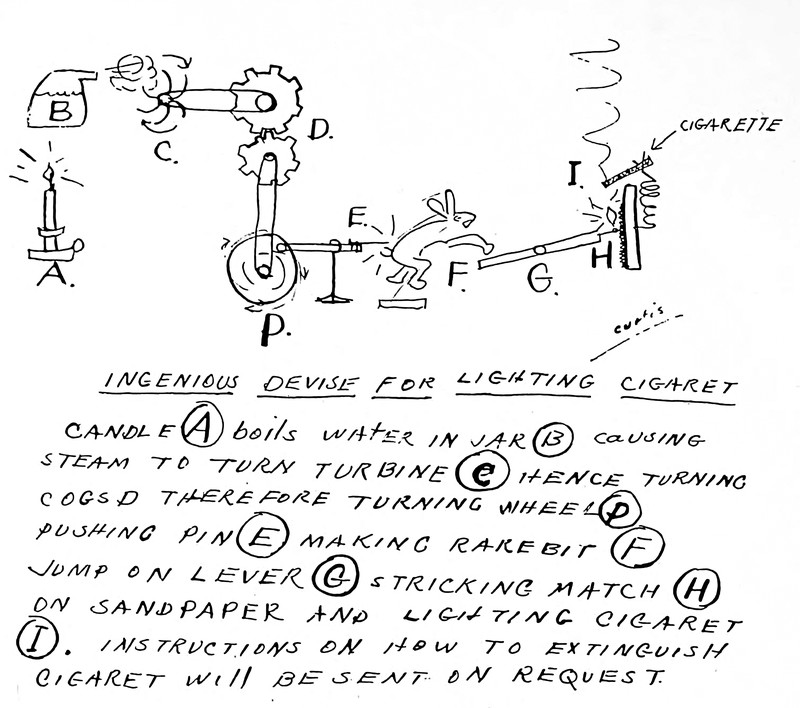 B
C.
D.
I.
CIGARETTE
A.
E.
F.
G.
H
P.
curtis
INGENIOUS DEVISE FOR LIGHTING CIGARET
CANDLE A boils WATER IN JAR B CAUSING
STEAM TO TURN TURBINE C HENCE TURNING
COGS D THEREFORE TURNING WHEEL P
PUSHING PIN E MAKING RAREBIT F
JUMP ON LEVER G STRICKING MATCH H
ON SANDPAPER AND LIGHTING CIGARET
I. INSTRUCTIONS ON HOW TO EXTINGUISH
CIGARET Will BE SENT ON REQUEST.